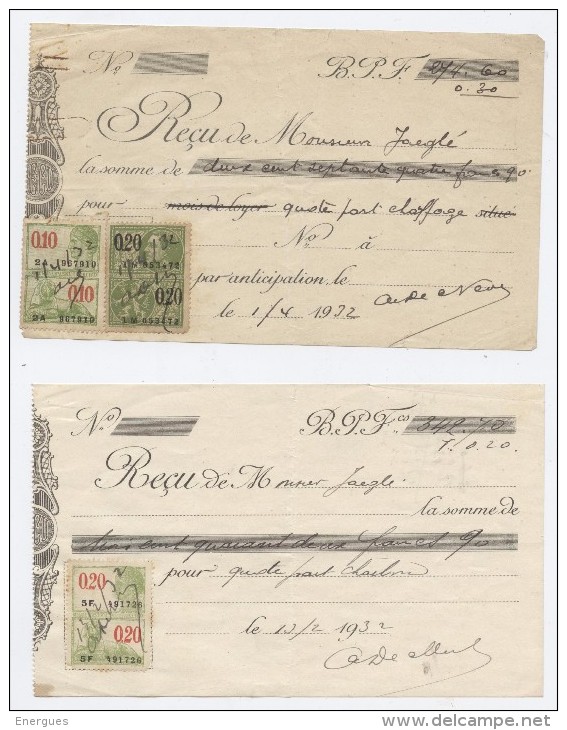 Nº B.P.F. 274.60
0.30
Reçu de Monsieur Jaeglé
la somme de deux cent septante quatre francs 90
pour mois de loyer quote part chaffage situé
Nº à
par anticipation, le
le 1/4 1932
0.10 0.20
2A 867910 1M 653472
0.10 0.20
2A 867910 1M 653472
Nº B.P.Fcs 342.70
T. 0.20
Reçu de Monsieur Jaeglé
la somme de
trois cent quarante deux francs 90
pour quote part charbon
le 13/2 1932
0.20
5F 391726
0.20
5F 391726
Energues
www.delcampe.net